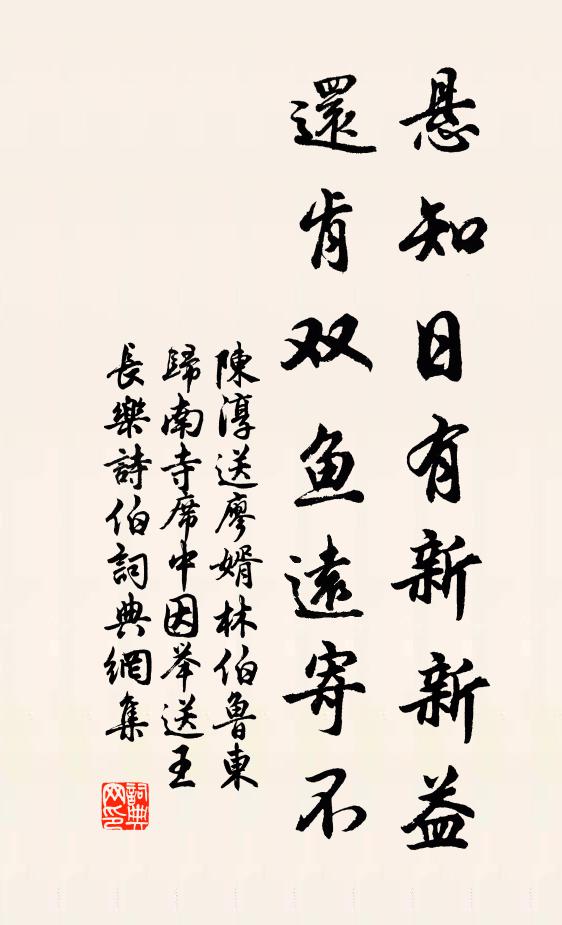 悬知日有新新益
還肯双鱼遠寄不
陳淳送廖婿林伯魯東
歸南寺席中因举送王
長樂詩伯詞典網集
詞典网印